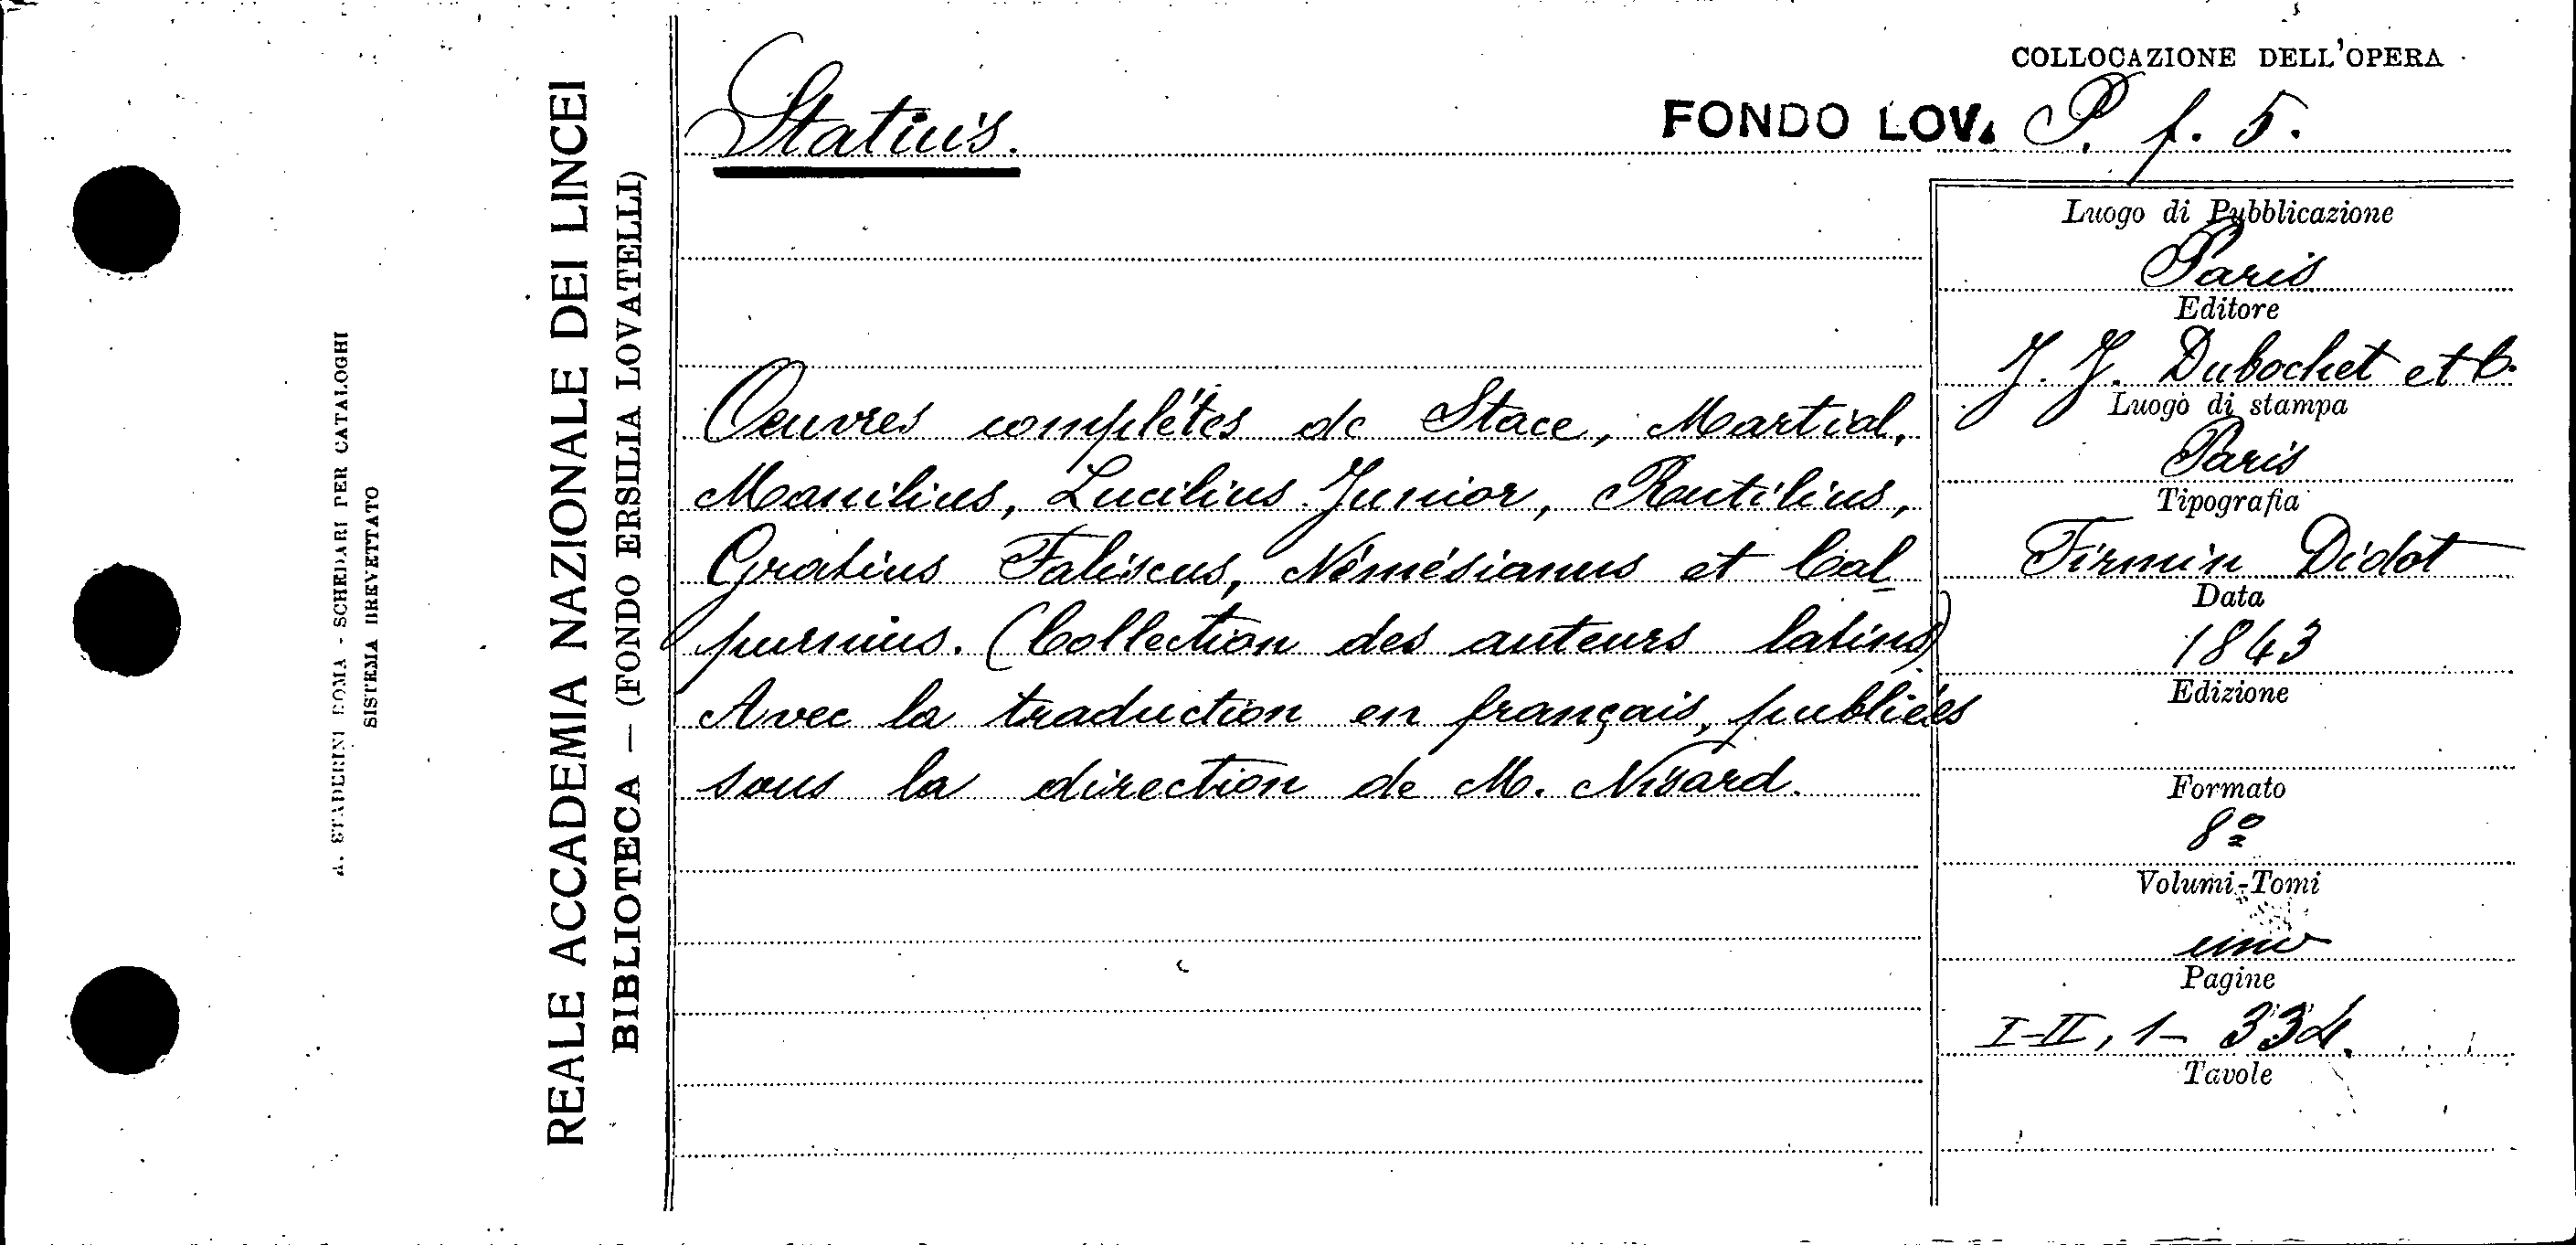 A. STADERINI ROMA - SCHEDARI PER CATALOGHI
SISTEMA BREVETTATO
REALE ACCADEMIA NAZIONALE DEI LINCEI
BIBLIOTECA — (FONDO ERSILIA LOVATELLI)
COLLOCAZIONE DELL'OPERA
FONDO LOV. P. f. 5.
Statius.
Oeuvres complètes de Stace, Martial,
Manilius, Lucilius Junior, Rutilius,
Gratius Faliscus, Némésianus et Cal-
purnius. (Collection des auteurs latins)
Avec la traduction en français, publiées
sous la direction de M. Nisard.
Luogo di Pubblicazione
Paris
Editore
J. J. Dubochet et C.
Luogo di stampa
Paris
Tipografia
Firmin Didot
Data
1843
Edizione
Formato
8º
Volumi-Tomi
uno
Pagine
I-II, 1- 334.
Tavole